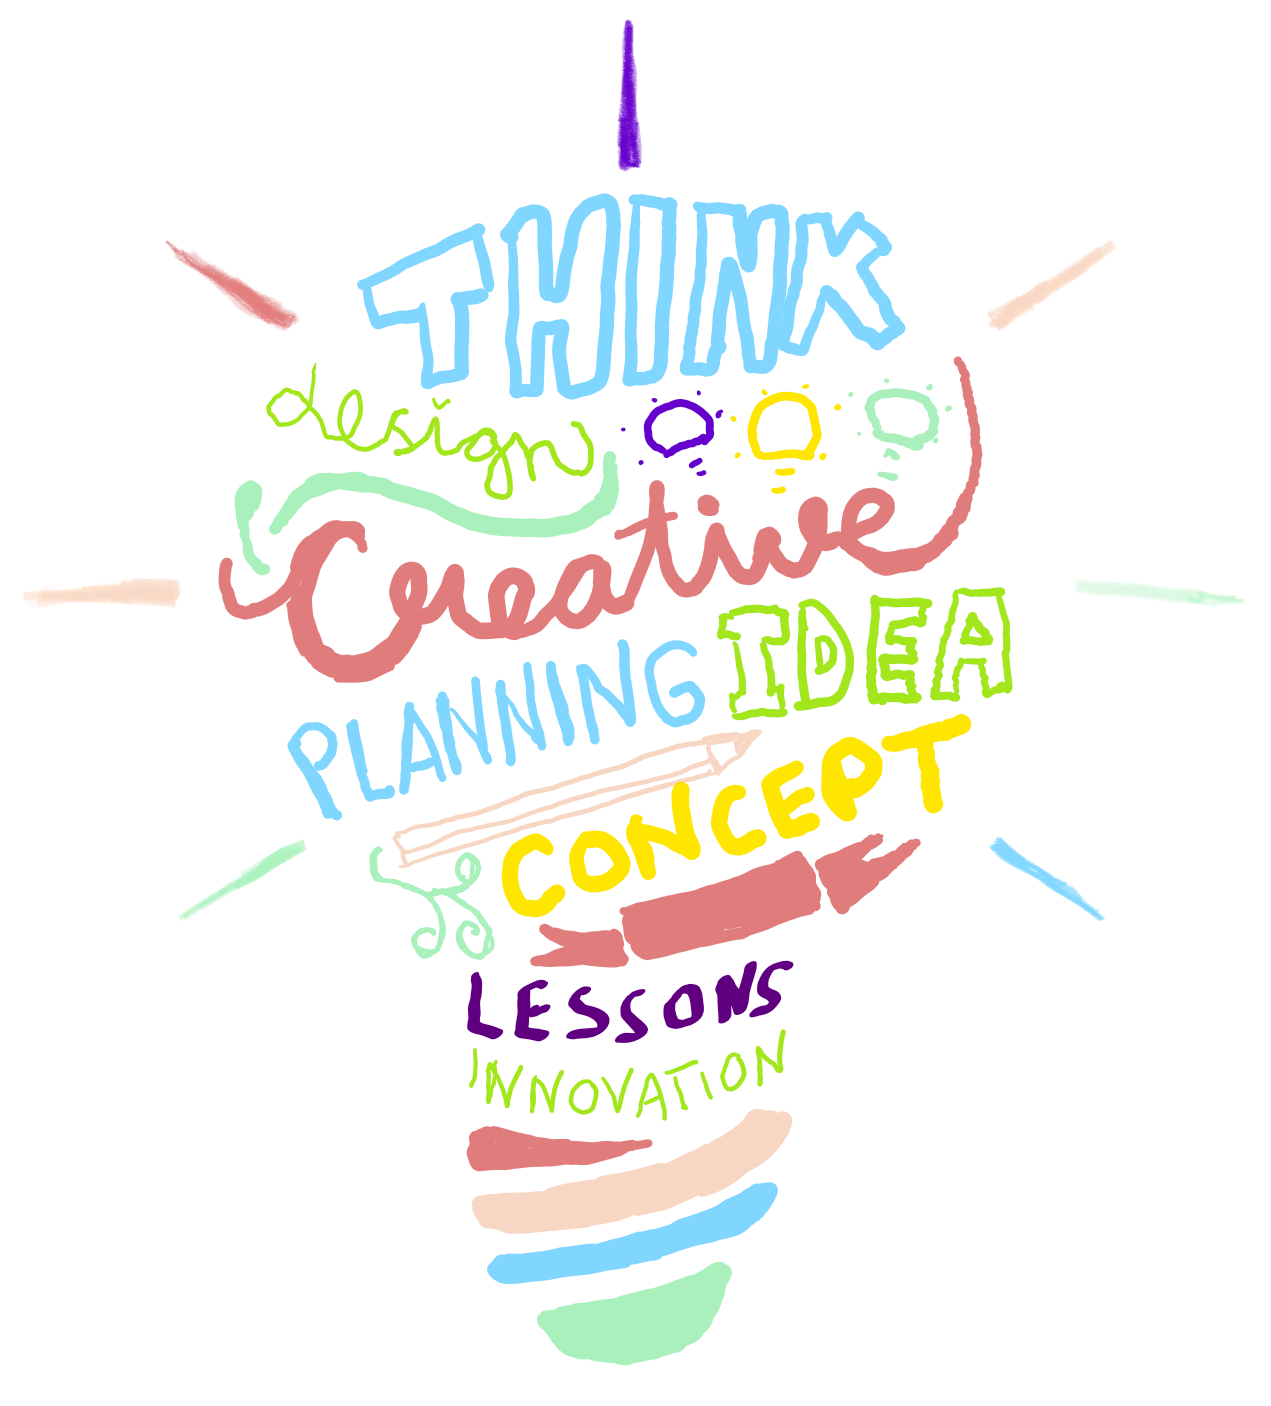 THINK
design
Creative
PLANNING IDEA
CONCEPT
LESSONS
INNOVATION